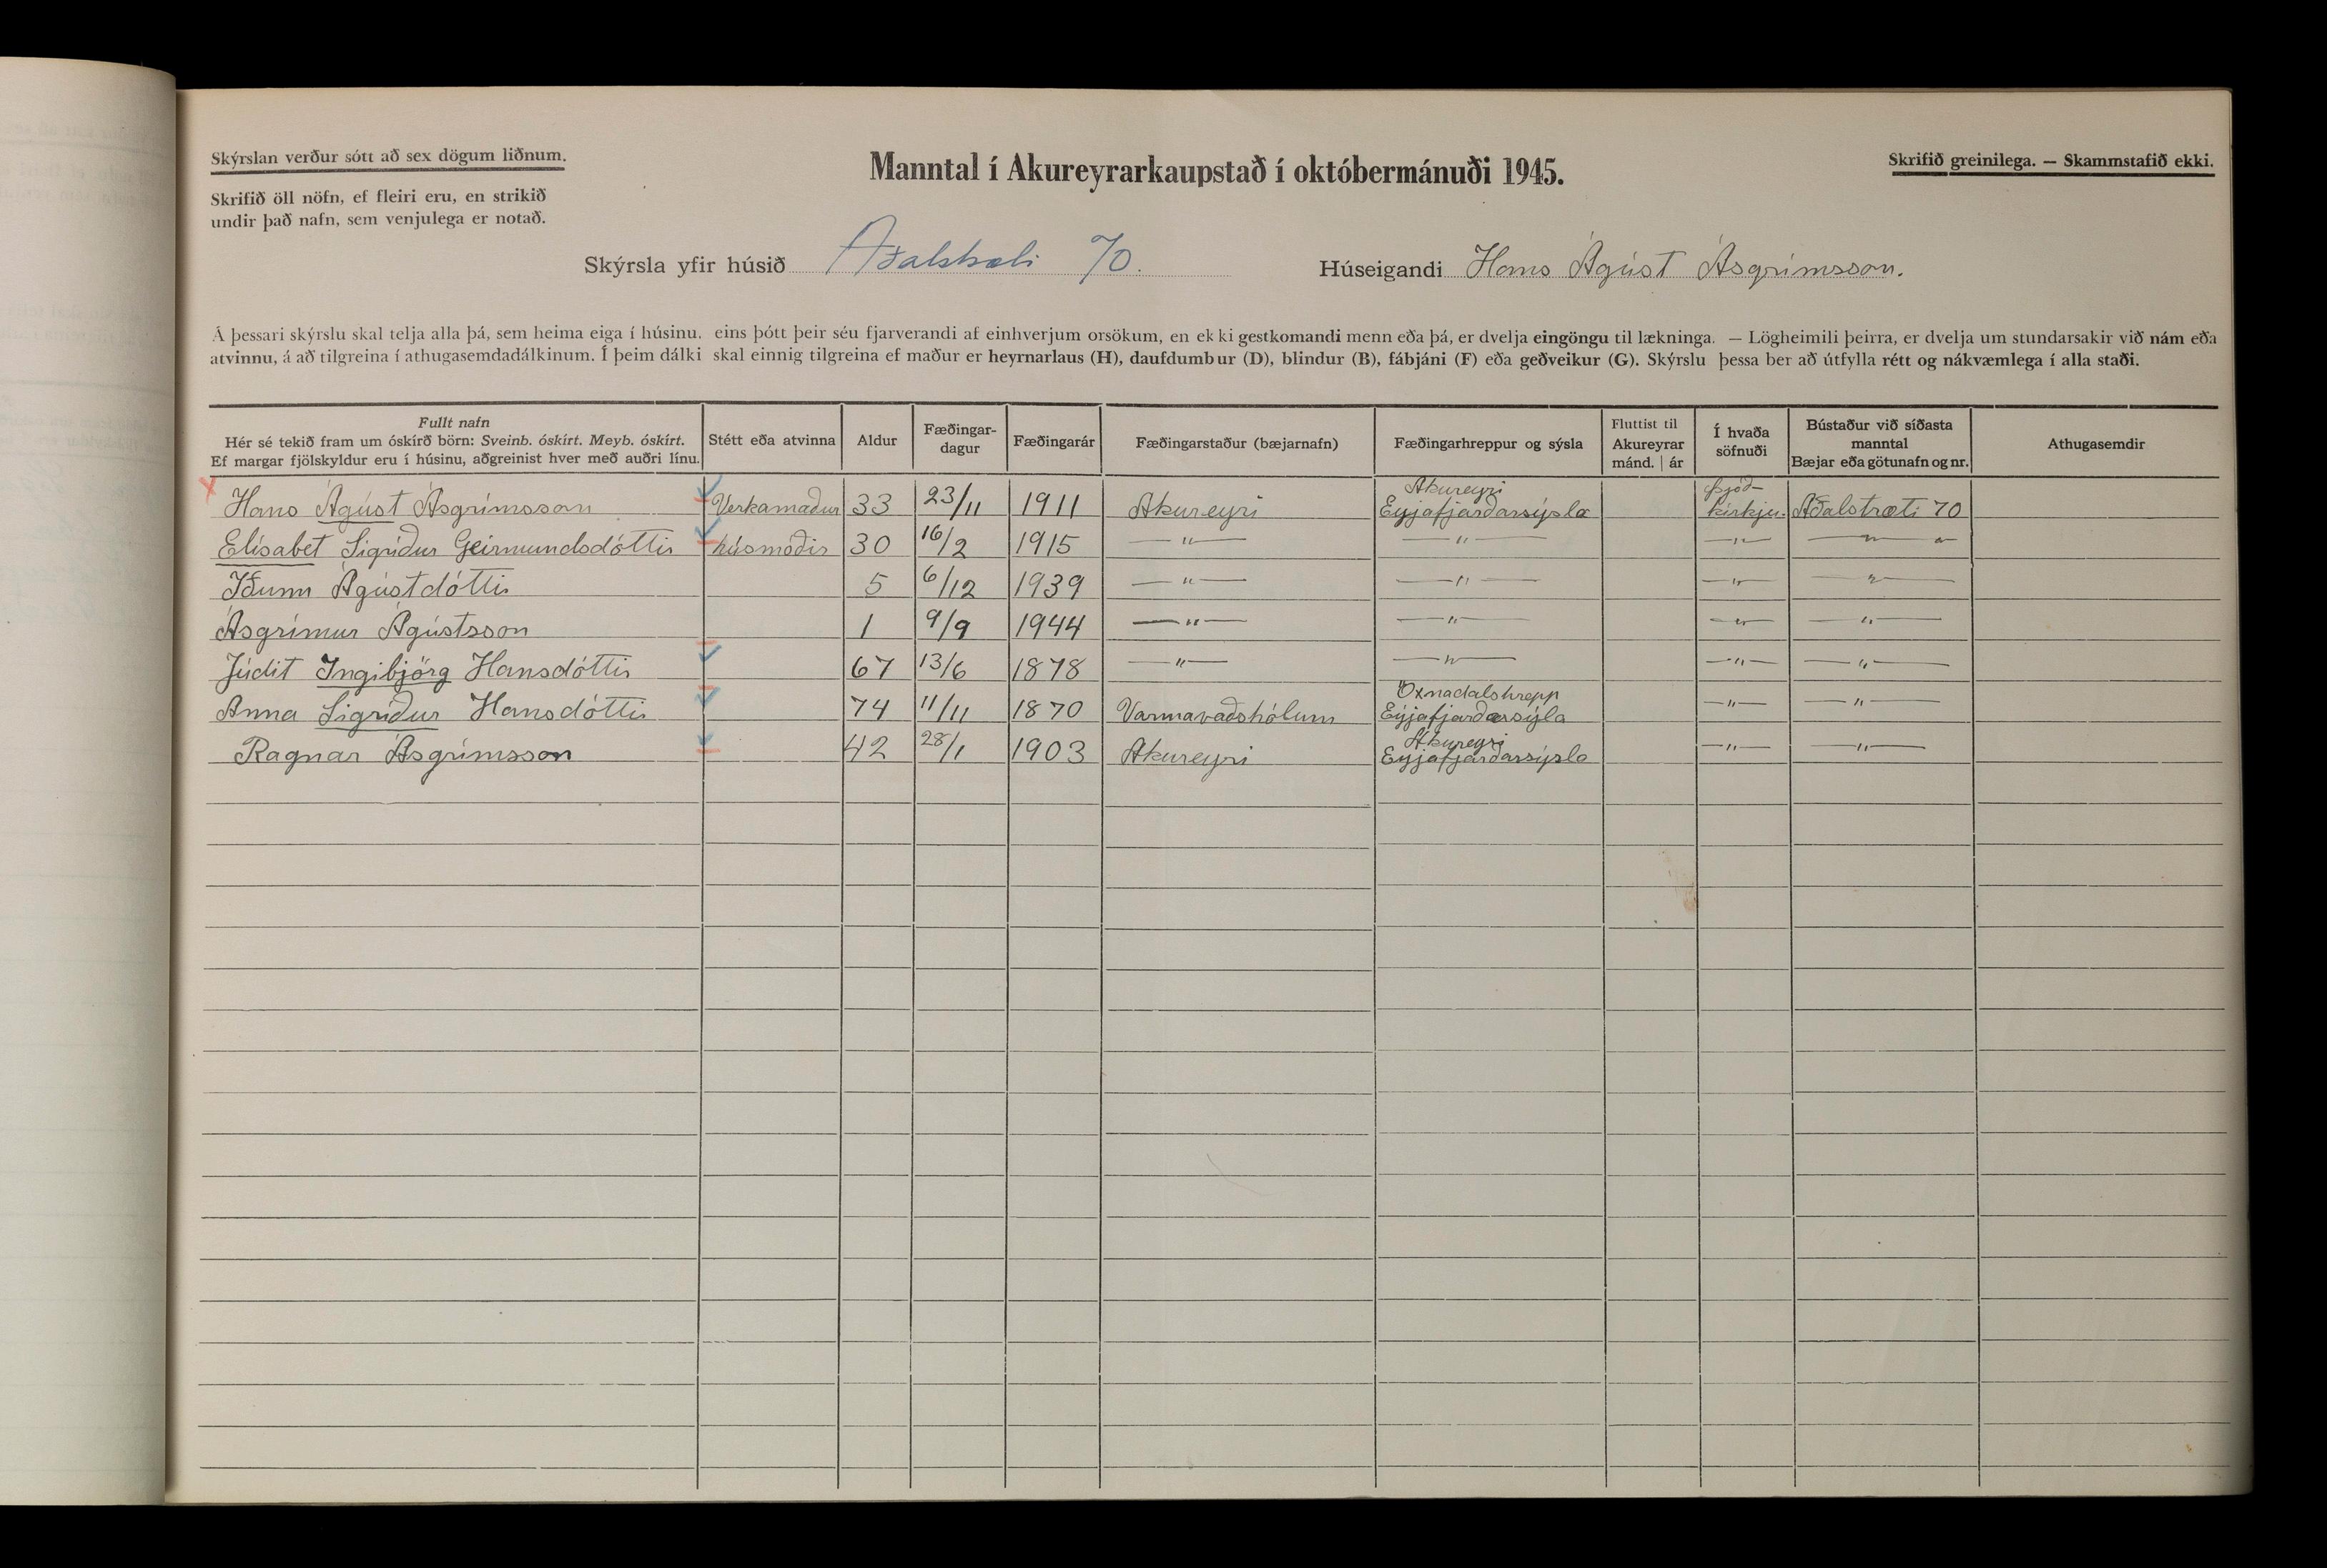 Skýrslan verður sótt að sex dögum liðnum.
Skrifið öll nöfn, ef fleiri eru, en strikið
undir það nafn, sem venjulega er notað.
Manntal í Akureyrarkaupstað í októbermánuði 1945.
Skrifið greinilega. — Skammstafið ekki.
Skýrsla yfir húsið Aðalstræti 70.
Húseigandi Hans Ágúst Ásgrímsson.
Á þessari skýrslu skal telja alla þá, sem heima eiga í húsinu, eins þótt þeir séu fjarverandi af einhverjum orsökum, en ekki gestkomandi menn eða þá, er dvelja eingöngu til lækninga. — Lögheimili þeirra, er dvelja um stundarsakir við nám eða
atvinnu, á að tilgreina í athugasemdadálkinum. Í þeim dálki skal einnig tilgreina ef maður er heyrnarlaus (H), daufdumbur (D), blindur (B), fábjáni (F) eða geðveikur (G). Skýrslu þessa ber að útfylla rétt og nákvæmlega í alla staði.
Fullt nafn
Hér sé tekið fram um óskírð börn: Sveinb. óskírt. Meyb. óskírt.
Ef margar fjölskyldur eru í húsinu, aðgreinist hver með auðri línu.
Stétt eða atvinna
Aldur
Fæðingar-
dagur
Fæðingarár
Fæðingarstaður (bæjarnafn)
Fæðingarhreppur og sýsla
Fluttist til
Akureyrar
mánd. | ár
Í hvaða
söfnuði
Bústaður við síðasta
manntal
Bæjar eða götunafn og nr.
Athugasemdir
Hans Ágúst Ásgrímsson Verkamaður 33 23/11 1911 Akureyri Akureyri Eyjafjarðarsýsla Þjóð- kirkju. Aðalstræti 70
Elísabet Sigríður Geirmundsdóttir húsmóðir 30 16/2 1915 —"— —"— —"— —"— "
Iðunn Ágústdóttir 5 6/12 1939 —"— —"— —"— —"—
Ásgrímur Ágústsson 1 9/9 1944 —"— —"— —"— —"—
Júdit Ingibjörg Hansdóttir 67 13/6 1878 —"— —"— —"— —"—
Anna Sigríður Hansdóttir 74 11/11 1870 Varmavaðshólum Öxnadalshrepp Eyjafjarðarsýla —"— —"—
Ragnar Ásgrímsson 42 28/1 1903 Akureyri Akureyri Eyjafjarðarsýsla —"— —"—